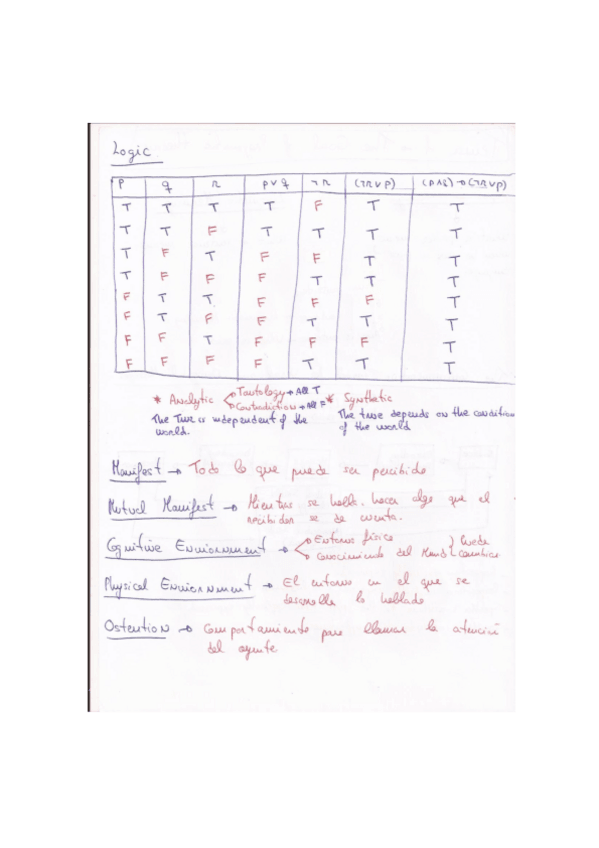 Logic.
P q R p v q ¬R (¬R v p) (p∧q) → (¬R v p)
T T T T F T T
T T F T T T T
T F T F F T T
T F F F T T T
F T T F F F T
F T F F T T T
F F T F F F T
F F F F T T T
* Analytic Tautology → All T * Synthetic
Contradiction → All F
The True is independent of the The true depends on the condition
world. of the world
Manifest → Todo lo que puede ser percibido
Mutual Manifest → Mientras se habla, hacer algo que el
recibidor se de cuenta.
Cognitive Environment → Entorno físico Puede
Conocimiento del Mundo cambiar
Physical Environment → El entorno en el que se
desarrolla lo hablado
Ostention → Comportamiento para llamar la atención
del oyente